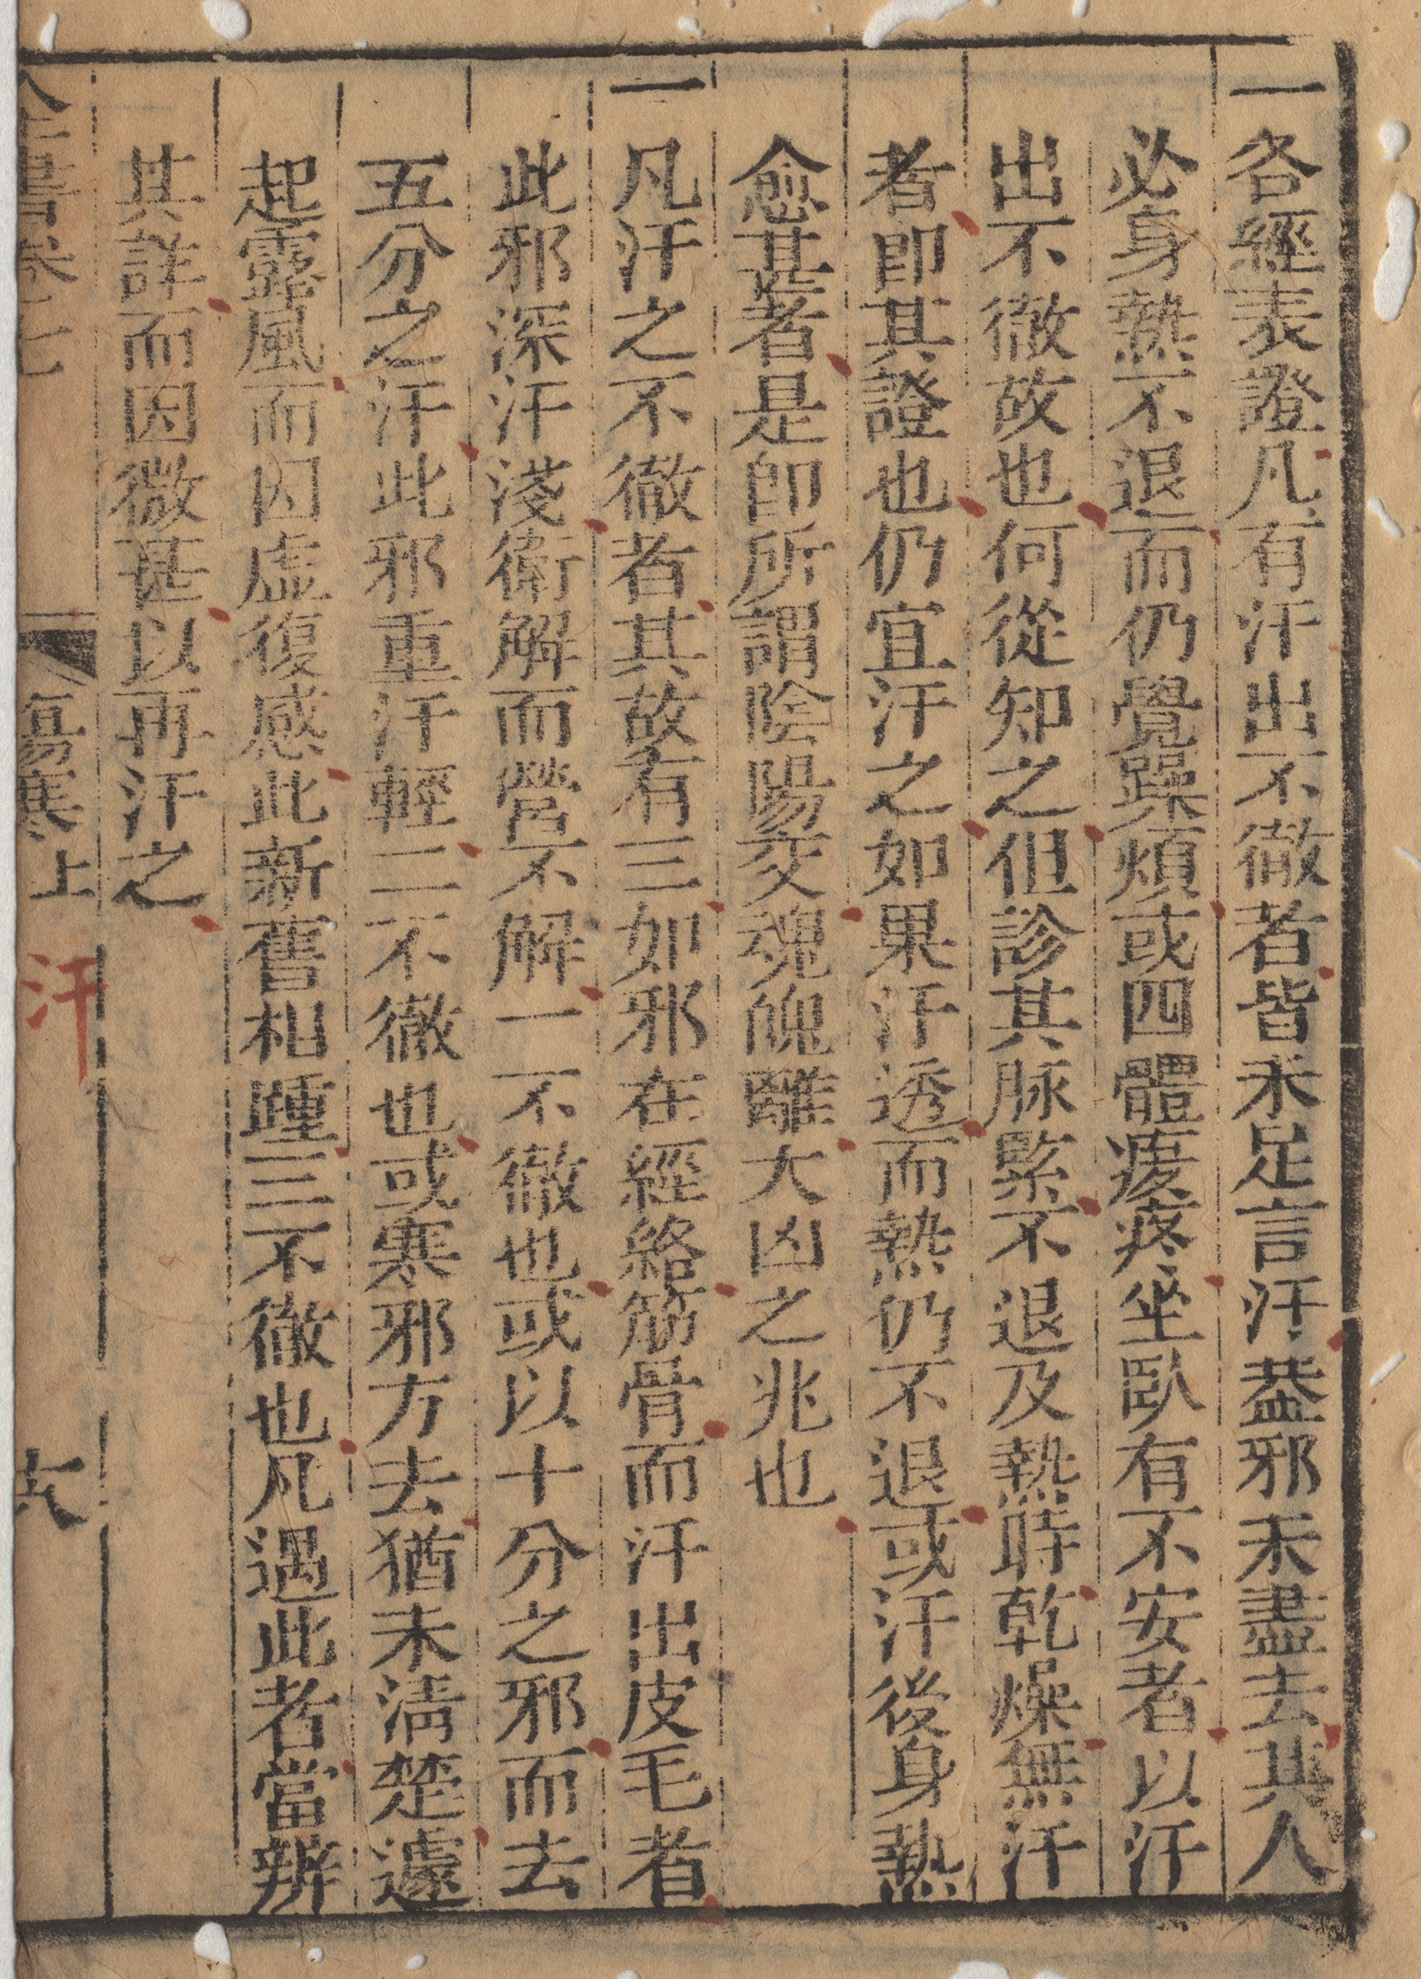 一各經表證凡有汗出不徹者皆未足言汗葢邪未盡去其人
必身熱不退而仍覺躁煩或四體痠疼坐臥有不安者以汗
出不徹故也何從知之但診其脉緊不退及熱時乾燥無汗
者即其證也仍宜汗之如果汗透而熱仍不退或汗後身熱
愈甚者是卽所謂陰陽交魂魄離大凶之兆也
一凡汗之不徹者其故有三如邪在經絡筋骨而汗出皮毛者
此邪深汗淺衛解而營不解一不徹也或以十分之邪而去
五分之汗此邪重汗輕二不徹也或寒邪方去猶未淸楚遽
起露風而因虛復感此新舊相踵三不徹也凡遇此者當辨
其詳而因微甚以再汗之
全書卷七 傷寒上 汗 六